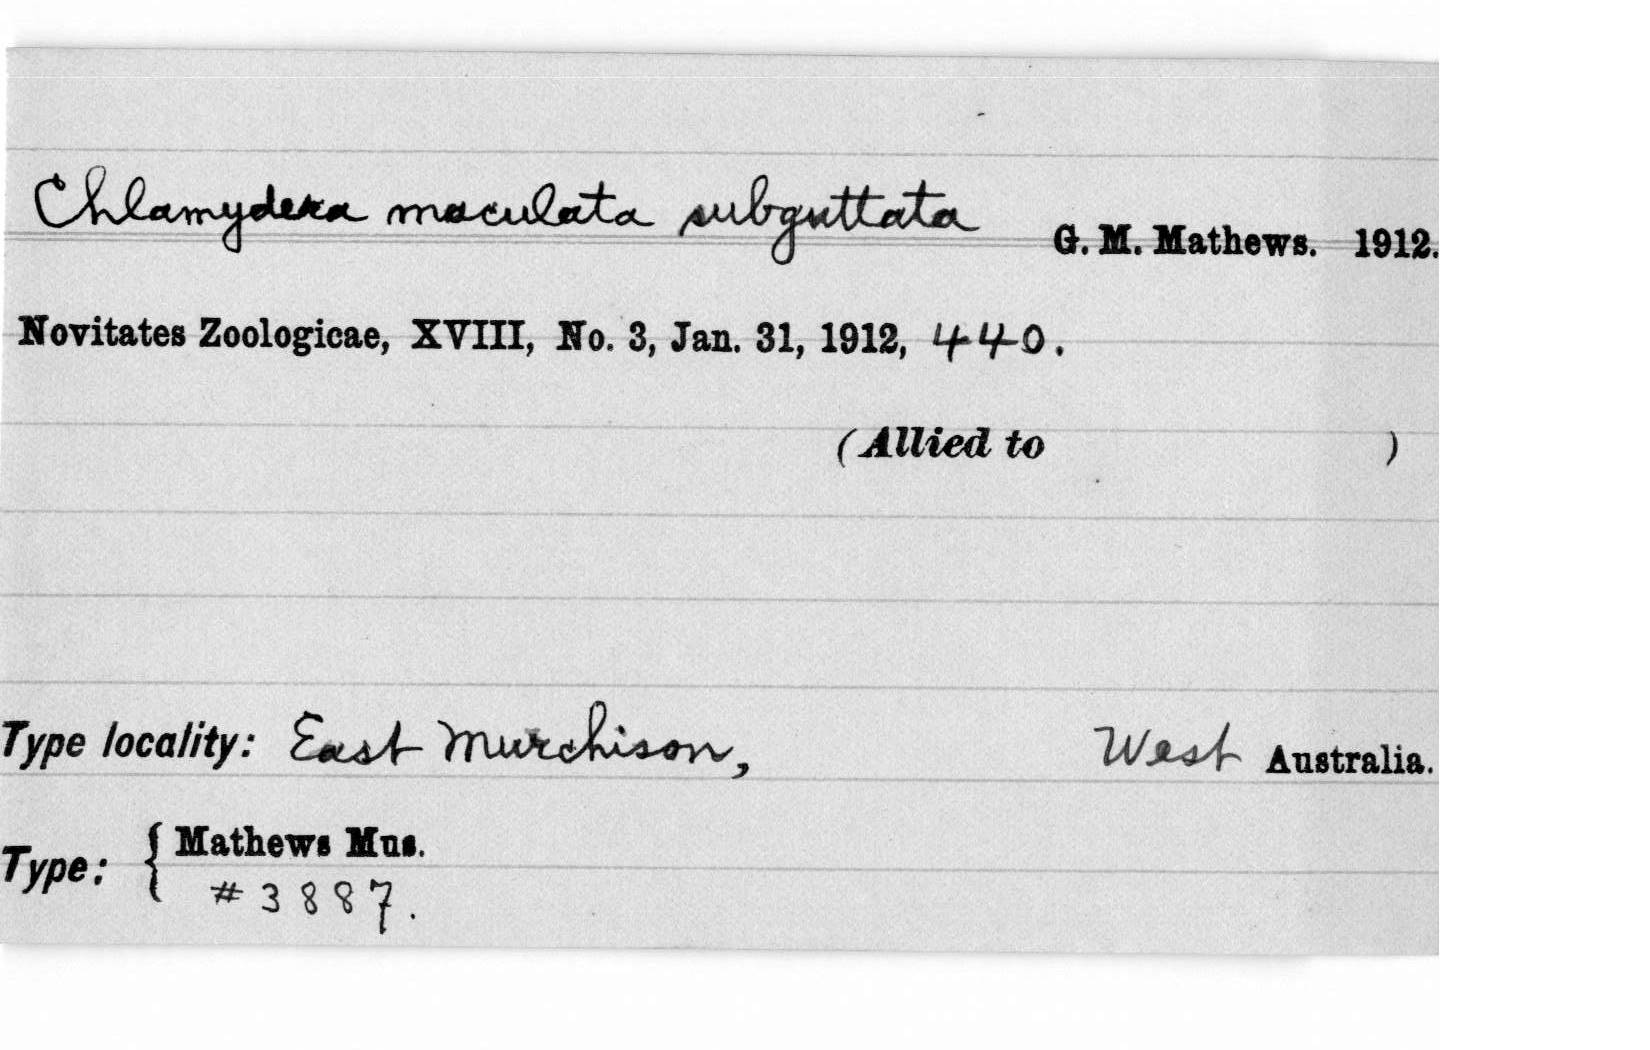 Chlamydera maculata subguttata G. M. Mathews. 1912.
Novitates Zoologicae, XVIII, No. 3, Jan. 31, 1912, 440.
(Allied to )
Type locality: East Murchison, West Australia.
Type: { Mathews Mus.
#3887.